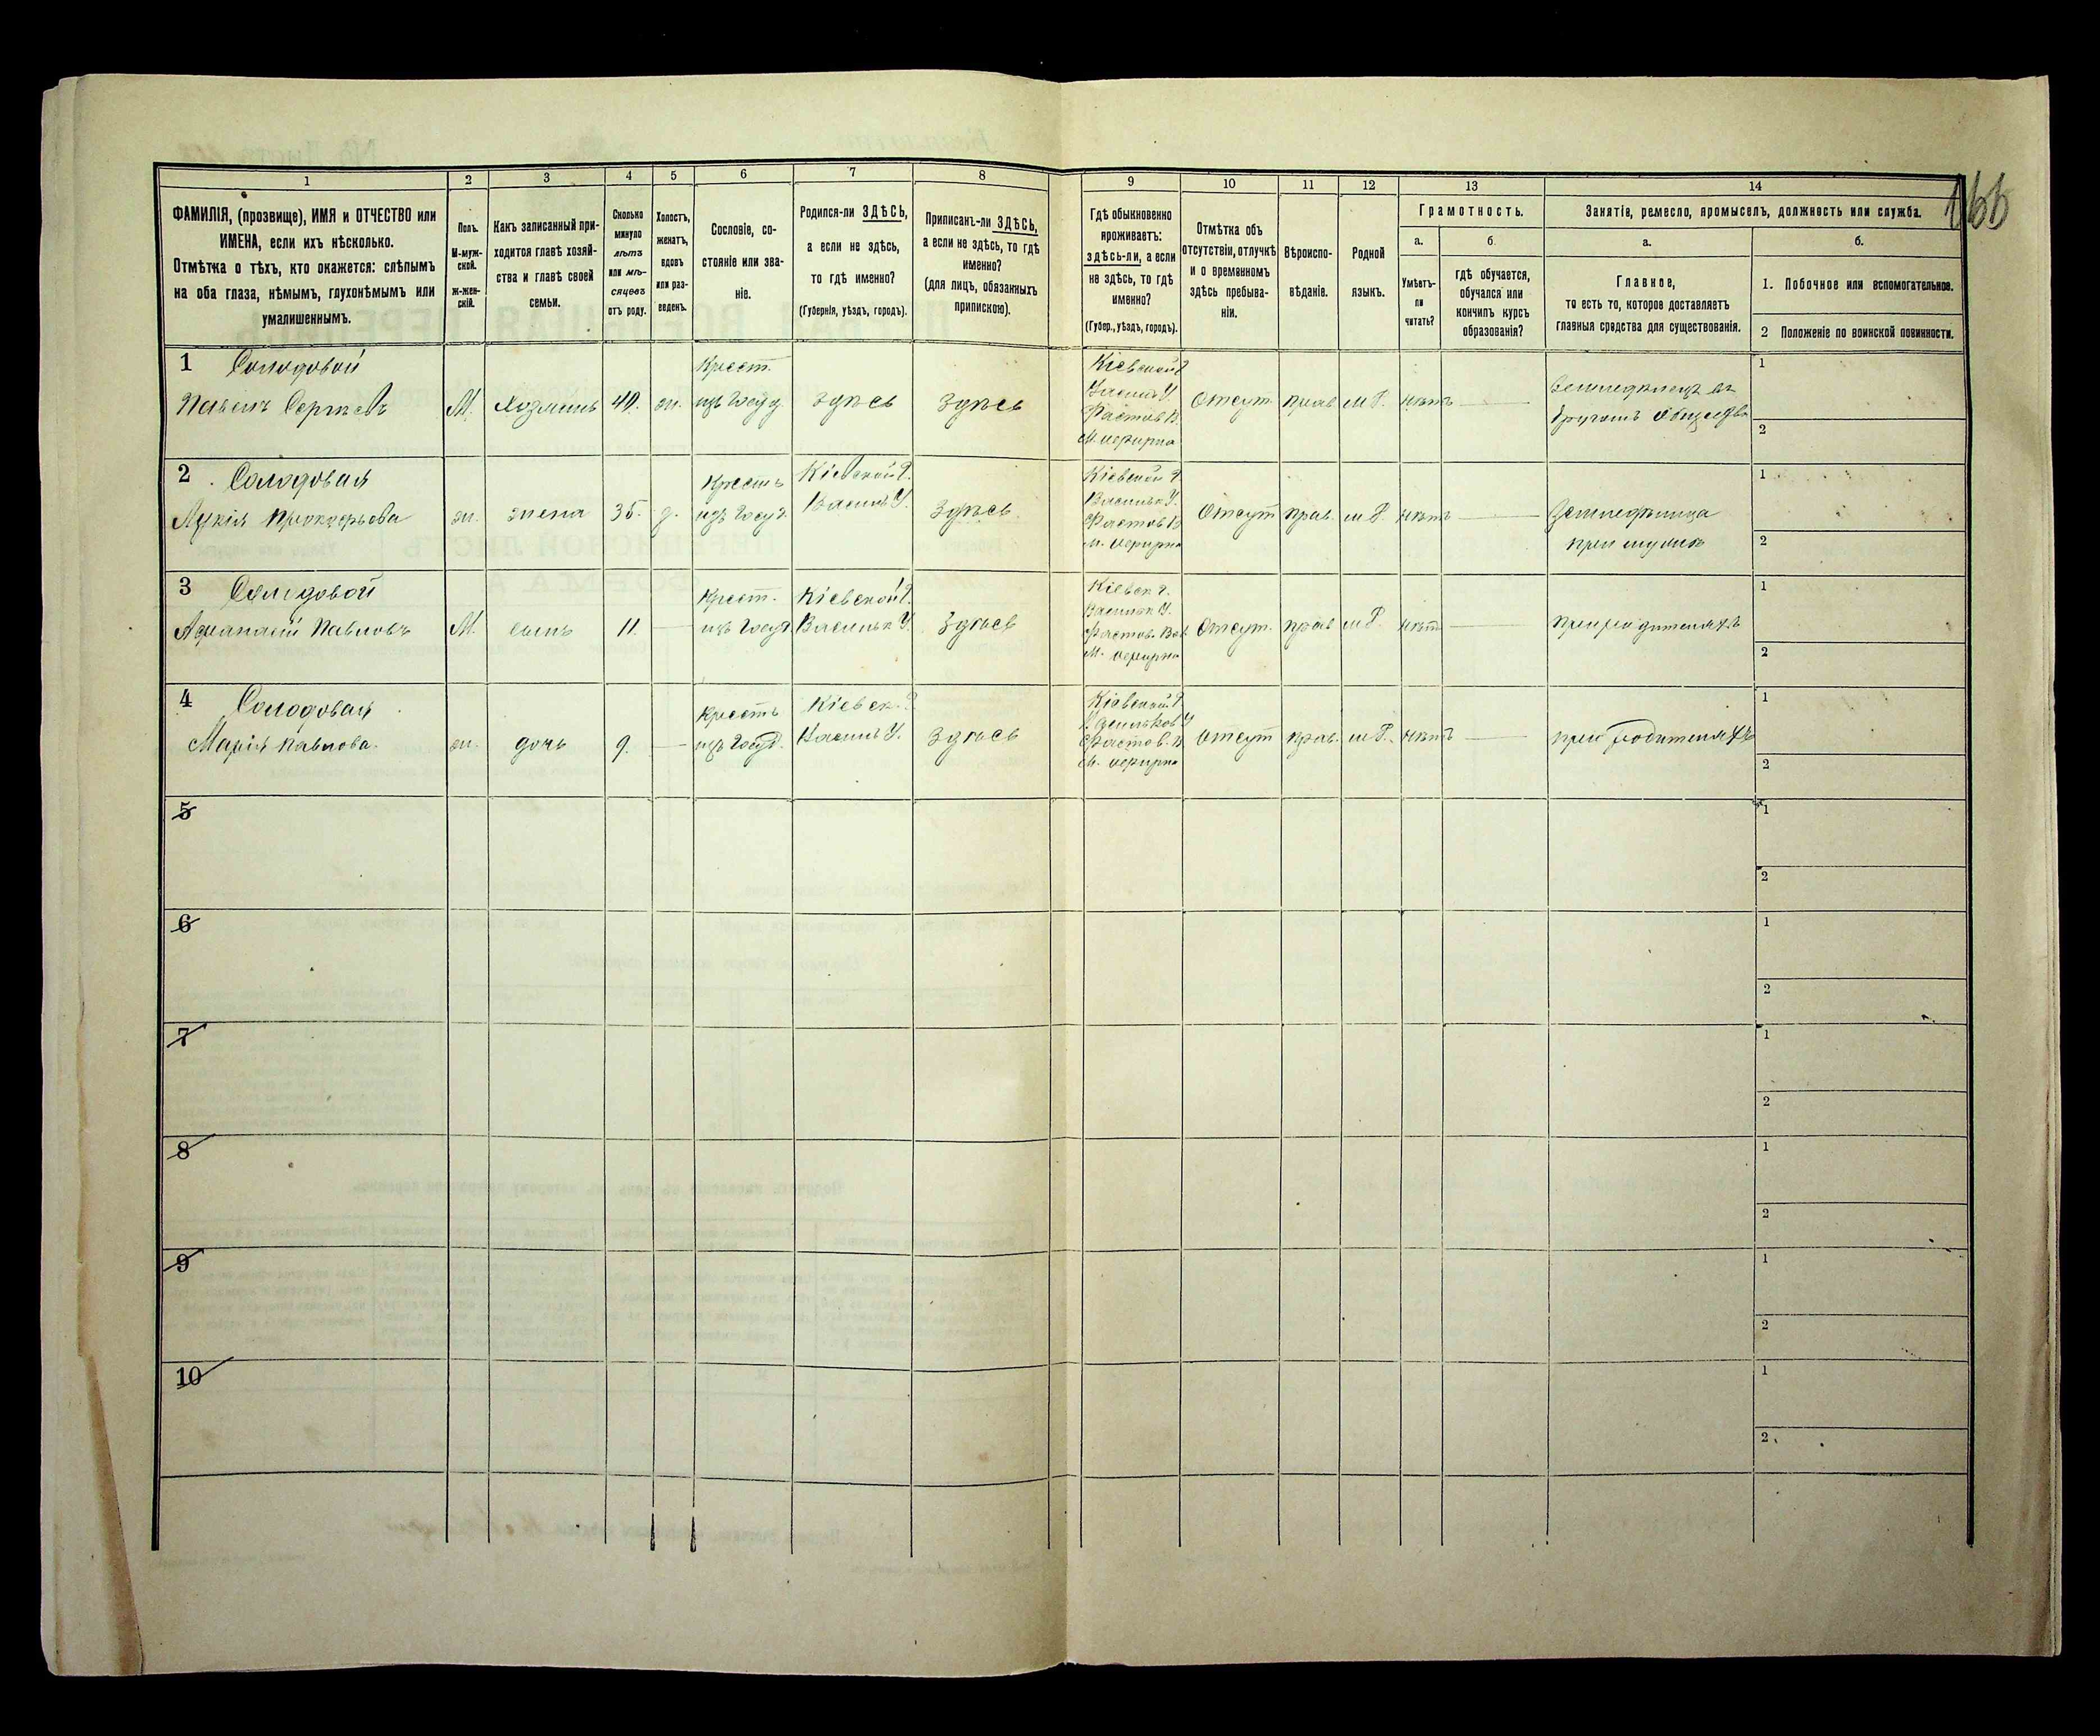 166
1 2 3 4 5 6 7 8 9 10 11 12 13 14
ФАМИЛІЯ, (прозвище), ИМЯ и ОТЧЕСТВО или
ИМЕНА, если ихъ нѣсколько.
Отмѣтка о тѣхъ, кто окажется: слѣпымъ
на оба глаза, нѣмымъ, глухонѣмымъ или
умалишеннымъ.
Полъ.
М-муж-
ской.
ж-жен-
скій.
Какъ записанный при-
ходится главѣ хозяй-
ства и главѣ своей
семьи.
Сколько
минуло
лѣтъ
или мѣ-
сяцевъ
отъ роду.
Холостъ,
женатъ,
вдовъ
или раз-
веденъ.
Сословіе, со-
стояніе или зва-
ніе.
Родился-ли ЗДѢСЬ,
а если не здѣсь,
то гдѣ именно?
(Губернія, уѣздъ, городъ).
Приписанъ-ли ЗДѢСЬ,
а если не здѣсь, то гдѣ
именно?
(для лицъ, обязанныхъ
припискою).
Гдѣ обыкновенно
проживаетъ:
здѣсь-ли, а если
не здѣсь, то гдѣ
именно?
(Губер., уѣздъ, городъ).
Отмѣтка объ
отсутствіи, отлучкѣ
и о временномъ
здѣсь пребыва-
ніи.
Вѣроиспо-
вѣданіе.
Родной
языкъ.
Грамотность.
а.
Умѣетъ-
ли
читать?
б
гдѣ обучается,
обучался или
кончилъ курсъ
образованія?
Занятіе, ремесло, промыселъ, должность или служба.
а.
Главное,
то есть то, которое доставляетъ
главныя средства для существованія.
б.
1. Побочное или вспомогательное.
2 Положеніе по воинской повинности.
1 Солодовой
Павелъ Сергѣевъ
М.
Хозяинъ
40.
ж.
Крест.
изъ Госуд
здѣсь
здѣсь
Кіевской Г
Васильк У.
Фастов В.
Отсут
прав
м Р.
нѣтъ
Земледѣлецъ въ
1
2
2 Солодовая
Прокофьева
ж.
жена
35.
Крестъ
изъ Госуд.
Кіевской Г.
Василь У.
здѣсь
Кіевской Г.
Васильк У.
Фастов В
Отсут
прав.
м Р
нѣтъ
Земледѣлица
при мужѣ
1
2
3 Солодовой
Афанасій Павловъ
М.
сынъ
11.
Крест.
изъ Госуд.
Кіевской Г.
Васильк У.
здѣсь
Кіевск Г.
Васильк У.
Фастов. Вол
Отсут.
прав
м Р.
нѣтъ
при родителяхъ
1
2
4 Солодовая
Марія Павлова.
ж.
дочь
9.
Крестъ
изъ Госуд.
Кіевск. Г
Василь У.
здѣсь
Кіевской Г
Васильков У
Фастов. В
Отсут
прав.
м Р.
нѣтъ
при родителяхъ
1
2
5
1
2
6
1
2
7
1
2
8
1
2
9
1
2
10
1
2